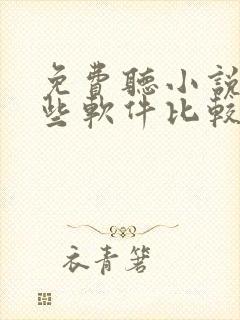 免費聽小說
些軟件比較
衣青箬